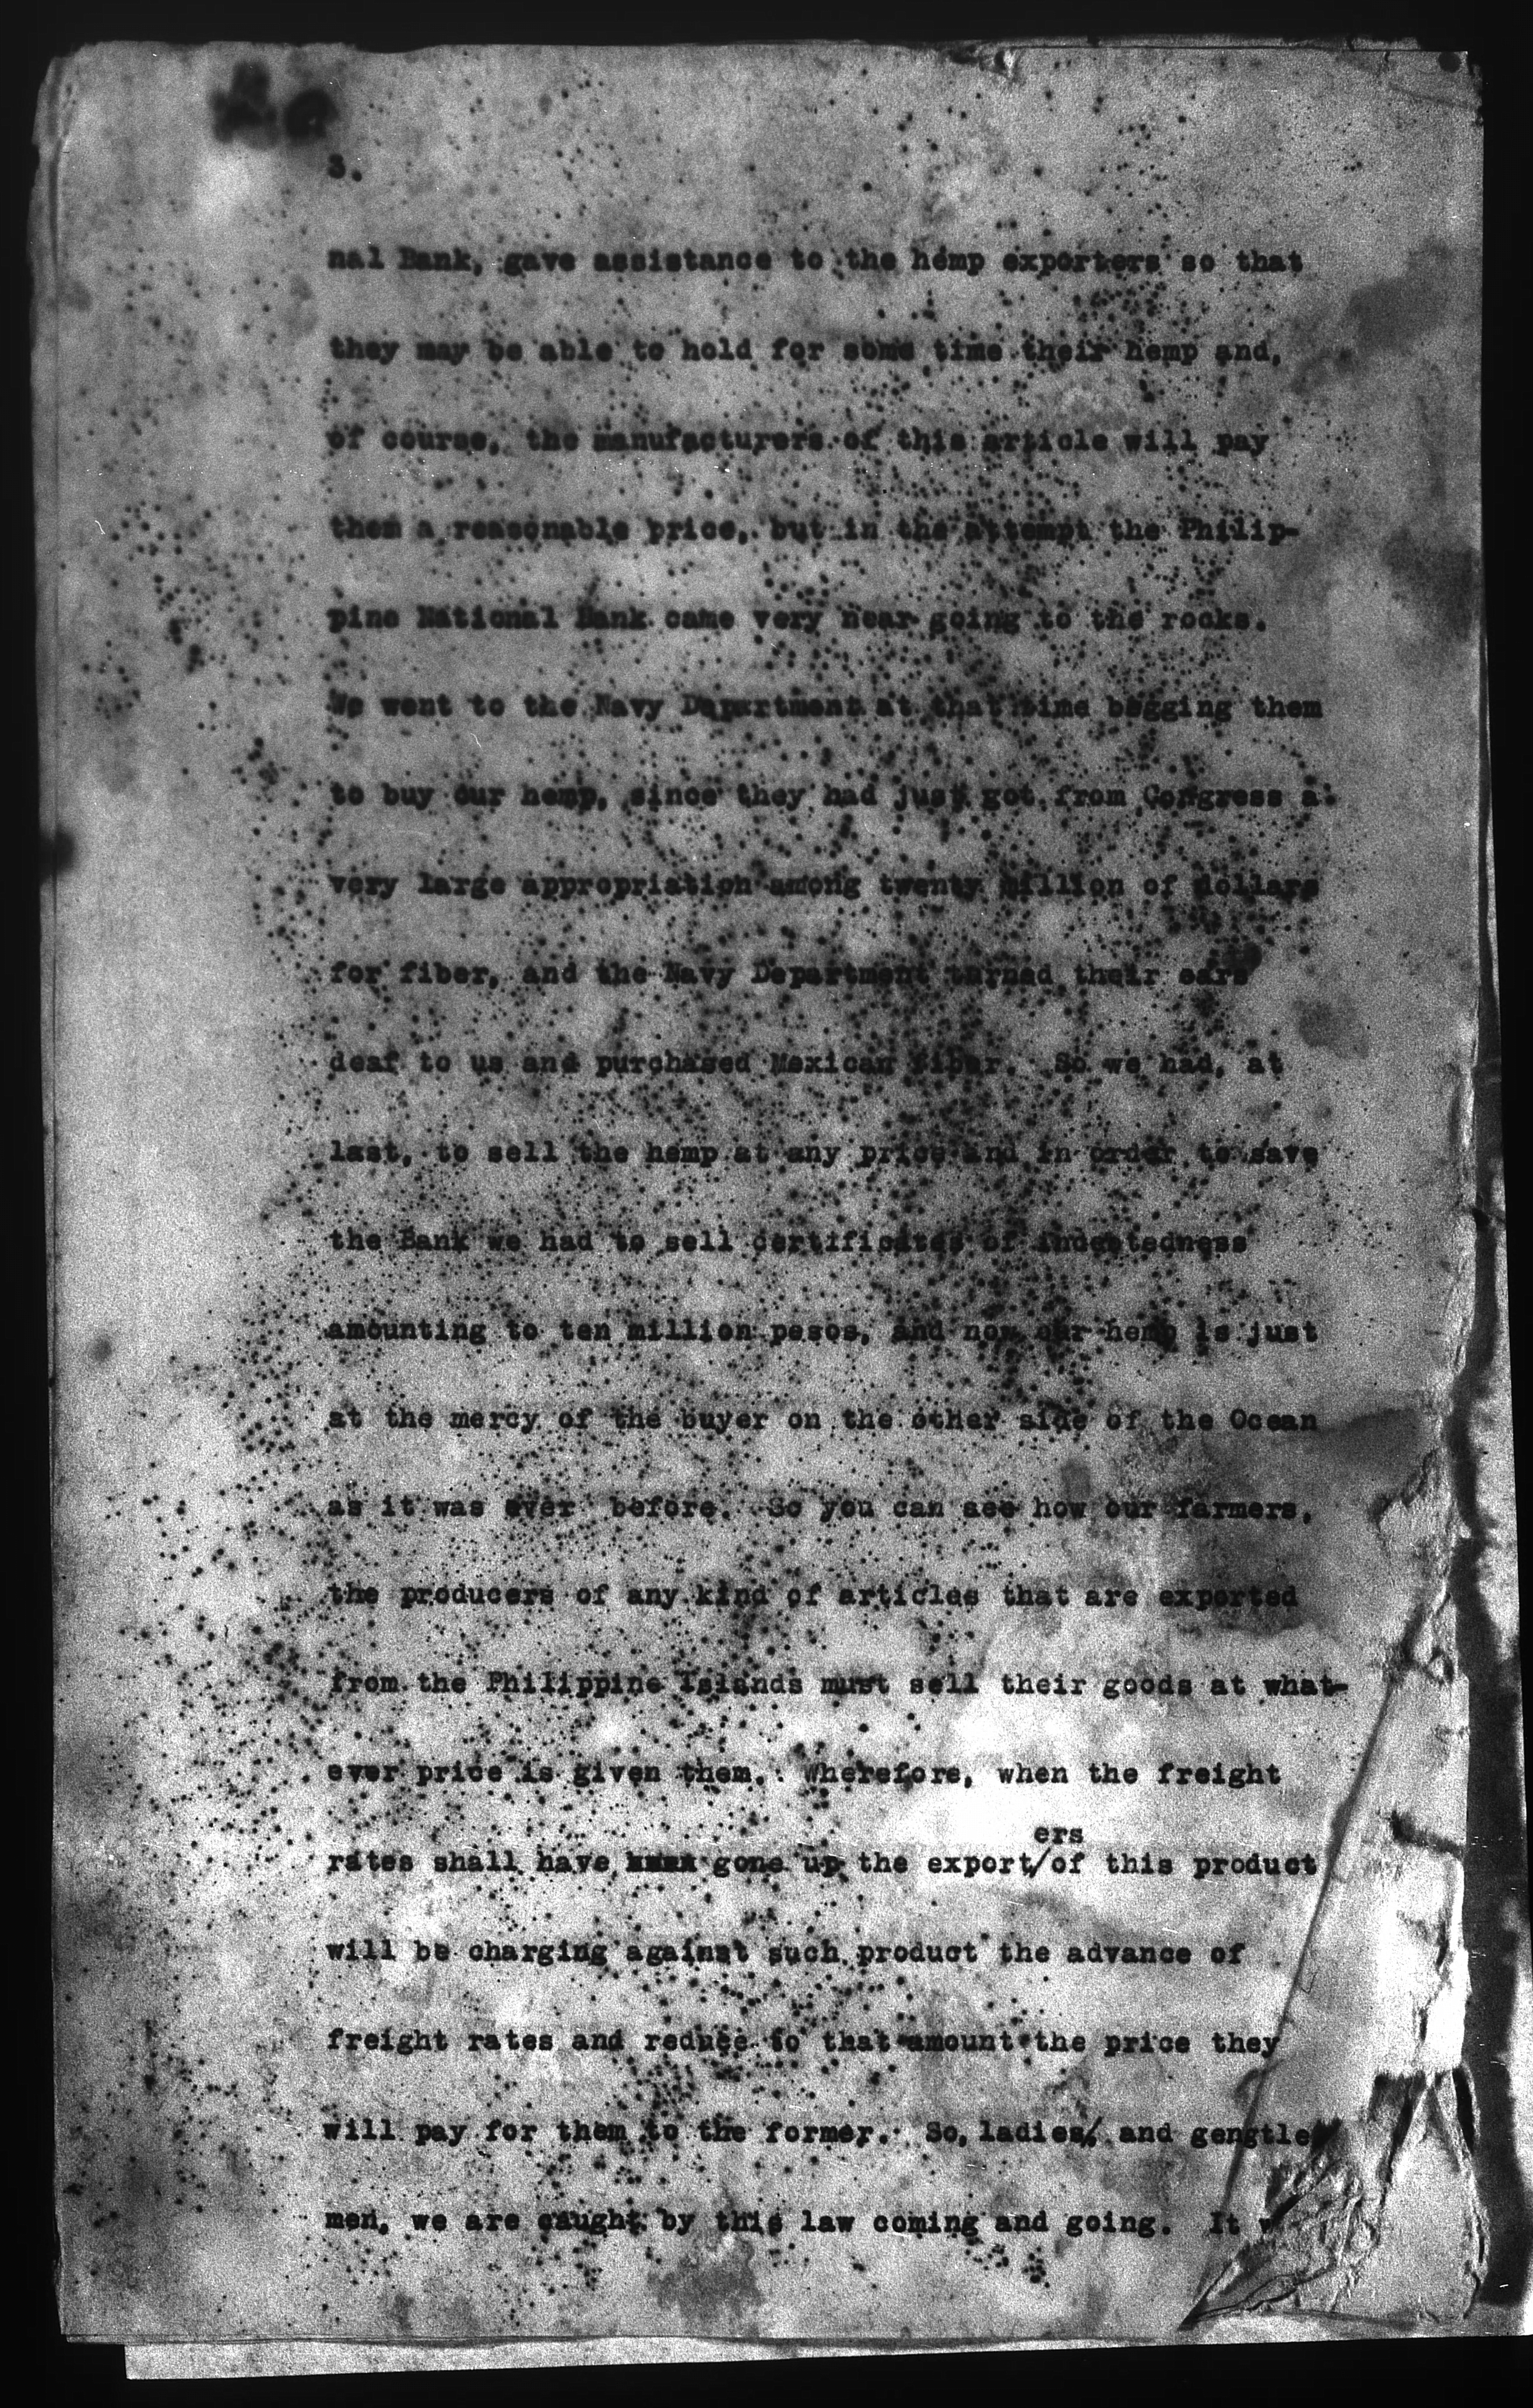 3.
nal Bank, gave assistance to the hemp exporters so that
they may be able to hold for some time their hemp and,
of course, the manufacturers of this article will pay
them a reasonable price, but in the attempt the Philip-
pine National Bank came very near going to the rocks.
We went to the Navy Department at that time begging them
to buy our hemp, since they had just got from Congress a
very large appropriation among twenty million of dollars
for fiber, and the Navy Department turned their ears
deaf to us and purchased Mexican fiber. So we had, at
last, to sell the hemp at any price and in order to save
the Bank we had to sell certificates of indeetedness
amounting to ten million pesos, and now our hemp is just
at the mercy of the buyer on the other side of the Ocean
as it was ever before. So you can see how our farmers,
the producers of any kind of articles that are exported
from the Philippine Islands must sell their goods at what-
ever price is given them. Wherefore, when the freight
ers
rates shall have gone up the export/of this product
will be charging against such product the advance of
freight rates and reduce to that amount the price they
will pay for them to the former. So, ladies, and gengtle
men, we are caught by this law coming and going. It